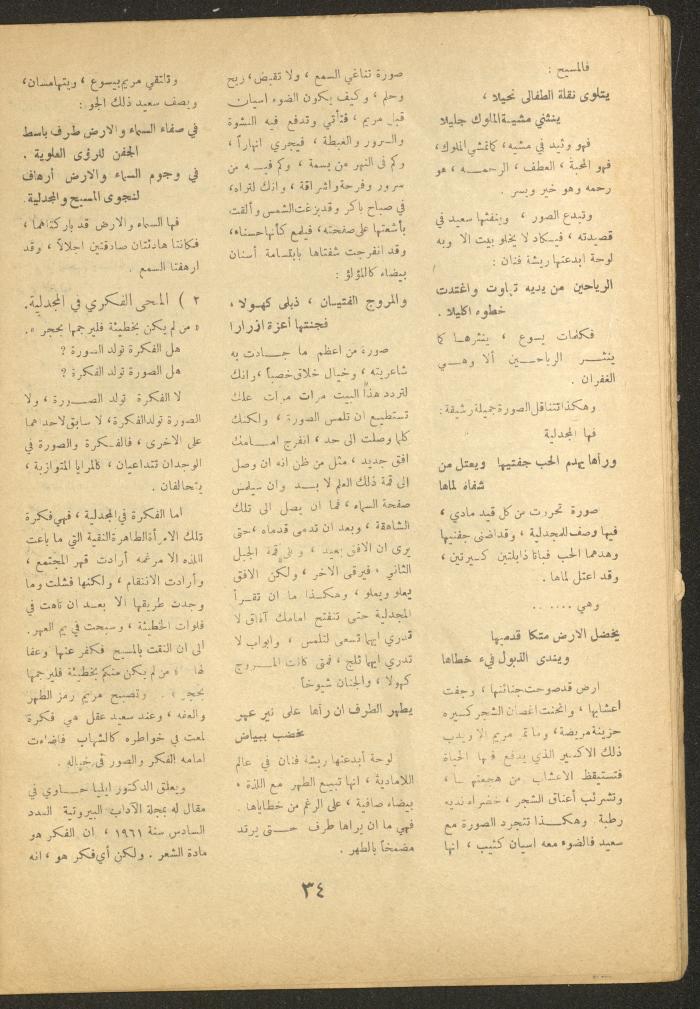 فالمسيح :
يتلوى نقلة الطفالى نحيلا ،
ينثني مشية الملوك جليلا
فهو وئيد في مشيه، كما تمشي الملوك،
فهو المحبة ، العطف ، الرحمـــه ، هو
رحمه وهو خير وبسر .
وتبدع الصور ، وينفثها سعيد في
قصيدته ، فيكاد لا يخلو بيت الا وبه
لوحة ابدعتها ريشة فنان :
الرياحين من يديه تهاوت واغتدت
خطوه اكليلا .
فكلمات يسوع ، ينثرهـا كما
ينثــر الرياحــين ألا وهــي
الغفران .
وهكذا تتناقل الصورة جميلة رشيقة :
فها المجدلية
ورآها يهدم الحب جفنيها ويعتل من
شفاه لماها
صورة تحررت من كل قيد مادي ،
فيها وصف للمجدلية ، وقد اضنى جفنيها
وهدهما الحب فباتا ذابلتين كسيرتين ،
وقد اعتل لماها .
وهي .......
يخضل الارض متكا قدميها
ويندى الذبول فيء خطاها
ارض قد صوحت جنائنها ، وجفت
أعشابها ، وانحنت اغصان الشجر كسيره
حزينة مريضة، وما تمر مريم الا ويدب
ذلك الاكسير الذي يدفع فيها الحياة
فتستيقظ الاعشاب من هجعتهـــا ،
وتشرئب أعناق الشجر ، خضراء نديه
رطبة . وهكـــذا تتجرد الصورة مع
سعيد فالضوء معه اسيان كئيب ، انها
صورة تناغي السمع ، ولا تقبض، ريح
وحلم ، وكيف يكون الضوء اسيان
قبل مريم ، فتأتي وتدفع فيه النشوة
والسرور والغبطة ، فيجري انهاراً ،
وكم في النهر من بسمة ، وكم فيـــه من
سرور وفرحة واشراقة ، وانك لتراه،
في صباح باكر وقد بزغت الشمس وألقت
بأشعتها على صفحته، فيلمع كأنها حسناء،
وقد انفرجت شفتاها بابتسامة أسنان
بيضاء كاللؤلؤ :
والمروج الفتيان ، ذبلى كهـولا ،
فجنتها أعزة ازرارا
صورة من اعظم ما جــادت به
شاعريته ، وخيال خلاق خصباً ، وانك
لتردد هذا البيت مرات مرات علك
تستطيع ان تلمس الصورة ، ولكنك
كلما وصلت الى حد ، انفرج امــامك
افق جديد ، مثل من ظن انه ان وصل
الى قمة ذلك العلم لا بـــد وان سيلمس
صفحة السماء ، فما ان يصل الى تلك
الشاهقة ، وبعد ان تدمى قدماه ، حتى
يرى ان الافق بعيد ، وعلى قمة الجبل
الثاني ، فيرقى الاخر ، ولكن الافق
يعلو ويعلو ، وهكــذا ما ان تقــرأ
المجدلية حتى تنفتح امامك آفاق لا
تدري ايها تسعى لتلمس ، وابواب لا
تدري ايها تلج ، فمتى كانت المـــروج
كهولا ، والجنان شيوخاً
يطهر الطرف ان رآها على نير عهر
مخضب ببياض
لوحة أبدعتها ريشة فنان في عالم
اللامادية ، انها تبيع الطهر مع اللذة ،
بيضاء صافية ، على الرغم من خطاياها .
فهي ما ان يراها طرف حــتى يرتد
مضمخاً بالطهر .
وتلتقي مريم بيسوع ، ويتهامسان،
ويصف سعيد ذلك الجو :
في صفاء السماء والارض طرف باسط
الجفن للرؤى العلوية .
في وجوم السماء والارض أرهاف
لنجوى المسيح والمجدلية.
فها السماء والارض قد باركتاهما ،
فكانتا هادئتان صادقتين اجلالاً ، وقد
ارهفتا السمع .
٢ ) المنحى الفكري في المجدلية.
« من لم يكن بخطيئة فليرجمها بحجر ».
هل الفكرة تولد الصورة ؟
هل الصورة تولد الفكرة ؟
لا الفكرة تولد الصــورة ، ولا
الصورة تولد الفكرة ، لا سابق لاحداهما
على الاخرى ، فالفــكرة والصورة في
الوجدان تتداعيان ، كالمرايا المتوازية ،
يتحالفان .
اما الفكرة في المجدلية ، فهي فكرة
تلك الامرأة الطاهرة النقية التي ما باعت
اللذه الا مرغمه أرادت قهر المجتمع ،
وأرادت الانتقام ، ولكنها فشلت وما
وجدت طريقها الا بعــد ان تاهت في
فلوات الخطيئة ، وسبحت في يم العهر.
الى ان التقت بالمسيح فكفر عنها وعفا
لها « من لم يكن منكم بخطيئة فليرجمها
بحجر » . وتصبح مريم رمز الطهر
والعفه ، وعند سعيد عقل هي فكرة
لمعت في خواطره كالشهاب فاضاءت
امامه الفكر والصور في خياله .
ويعلق الدكتور ايليا حــاوي في
مقال له بمجلة الآداب البيروتية العدد
السادس سنة ١٩٦١ ، ان الفكر هو
مادة الشعر . ولكن أي فكر هو ، انه
٣٤